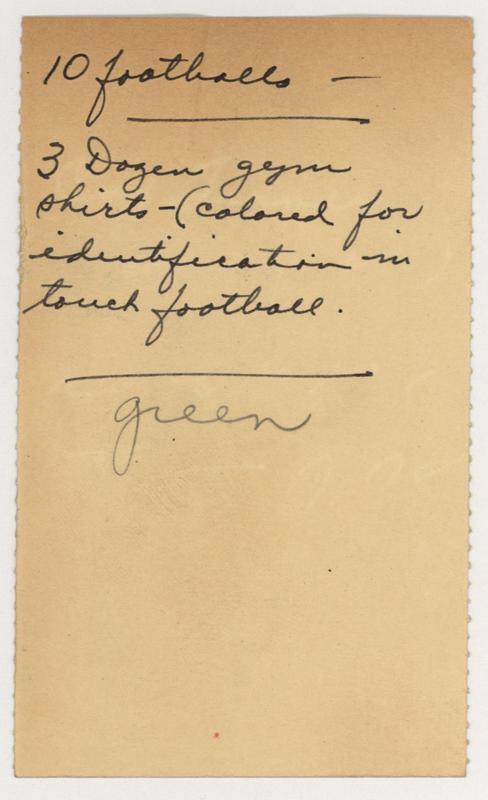 10 footballs —
3 Dozen gym
shirts - (colored for
identification in
touch football.
green